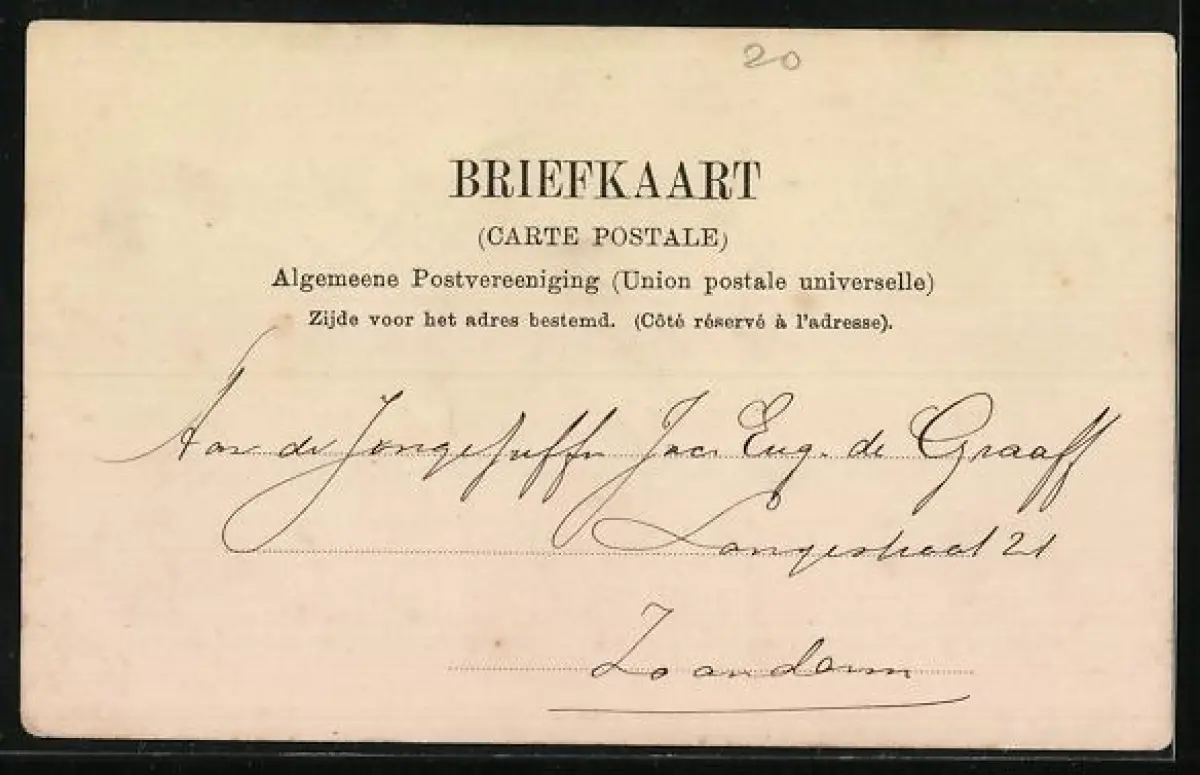 20
BRIEFKAART
(CARTE POSTALE)
Algemeene Postvereeniging (Union postale universelle)
Zijde voor het adres bestemd. (Côté réservé à l'adresse).
Aan de Jongejuffr Jac. Eug. de Graaff
Langestraat 21
Zaandam